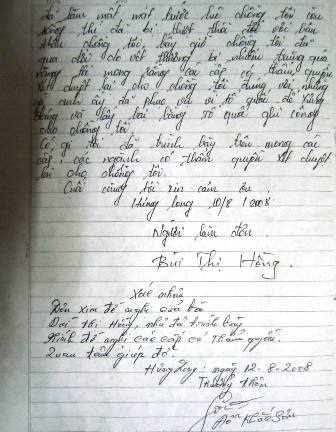 đã làm mất, mất trước lúc chồng tôi còn
sống thì đã bị thiệt thòi đối với bản
thân chồng tôi bây giờ chồng tôi đã
qua đời do vết thương bị nhiễm trùng qua
rằng tôi mong rằng các cấp có thẩm quyền
xét duyệt lại cho chồng tôi đúng với những
gì anh ấy đã phục vụ vì tổ quốc để xứng
đáng với lấy bài bằng tổ quốc ghi công
cho chồng tôi
Có gì tôi đã trình bày trên mong các
cấp, các ngành có thẩm quyền xét duyệt
lại cho chồng tôi.
Cuối cùng tôi xin cảm ơn.
Hùng Long 10/8/2008
Người làm đơn
Bùi Thị Hồng.
Xác nhận
Đơn xin đề nghị của bà
Bùi Thị Hồng, như đã trình bày
Kính đề nghị các cấp có thẩm quyền.
Quan tâm giúp đỡ.
Hùng Long: ngày 12-8-2008
Trưởng thôn
Khắc Sơn